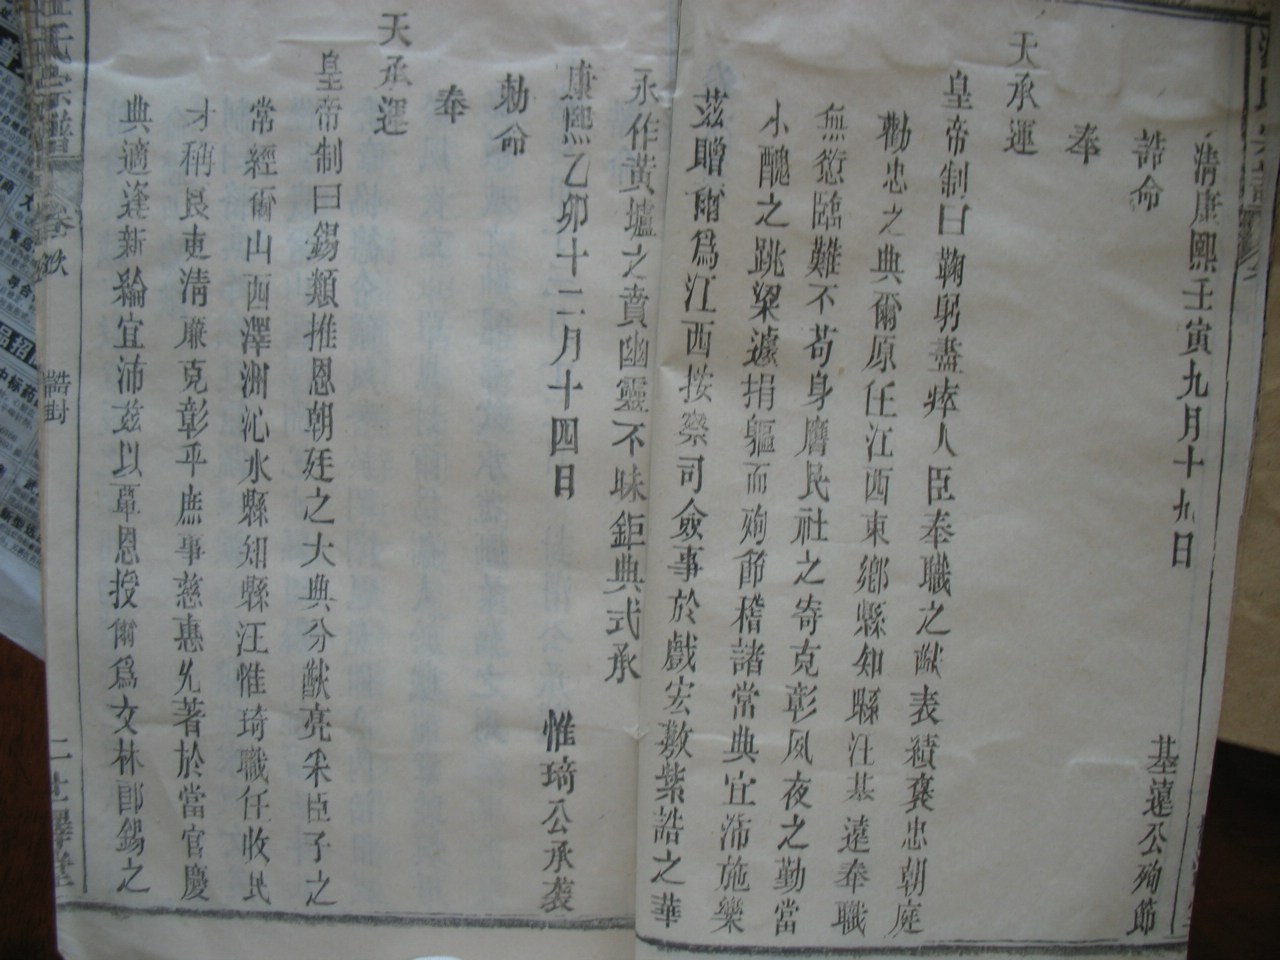 清康熙壬寅九月十九日
誥命 基遠公殉節
奉
天承運
皇帝制曰鞠躬盡瘁人臣奉職之猷表績褒忠朝庭
勸忠之典爾原任江西東鄉縣知縣汪基遠奉職
無愆臨難不苟身膺民社之寄克彰風夜之勤當
小醜之跳梁遽捐軀而殉節稽諸當典宜沛施樂
茲贈爾為江西按察司僉事於戲宏敷紫誥之華
永作黃壚之賁幽靈不昧鉅典式承
康熙乙卯十二月十四日 惟琦公承袭
勅命
奉
天承運
皇帝制曰錫類推恩朝廷之大典分猷亮采臣子之
常經爾山西澤洲沁水縣知縣汪惟琦職任收民
才稱良吏清廉克彰乎庶事慈惠久著於當官慶
典適逢新綸宜沛茲以覃恩授爾爲文林郎錫之
氏宗譜 卷 誥封